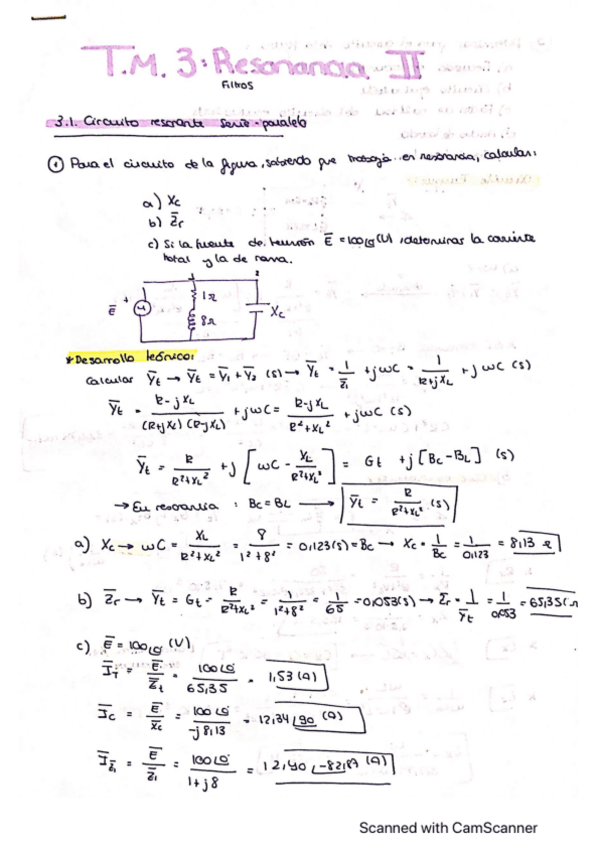 T.M. 3: Resonancia II
Filtros
3.1. Circuito resonante serie-paralelo
① Para el circuito de la figura, sabiendo que trabaja en resonancia, calcular:
a) Xc
b) Z̅r
c) Si la fuente de tensión E̅ = 100∠0 (V), determinar la corriente
total y la de rama.
E̅ + 1Ω 8Ω Xc
* Desarrollo teórico:
Calcular Y̅t → Y̅t = Y̅1 + Y̅2 (s) → Y̅t = 1/Z̅1 + jωC = 1/(R+jXL) + jωC (s)
Y̅t = (R-jXL)/((R+jXL)(R-jXL)) + jωC = (R-jXL)/(R²+XL²) + jωC (s)
Y̅t = R/(R²+XL²) + j[ωC - XL/(R²+XL²)] = Gt + j[Bc-BL] (s)
→ En resonancia : Bc = BL → Y̅t = R/(R²+XL²) (s)
a) Xc → ωC = XL/(R²+XL²) = 8/(1²+8²) = 0,123(s) = Bc → Xc = 1/Bc = 1/0,123 = 8,13 Ω
b) Z̅r → Y̅t = Gt = R/(R²+XL²) = 1/(1²+8²) = 1/65 = 0,053(s) → Zr = 1/Y̅t = 1/0,053 = 65,35(
c) E̅ = 100∠0 (V)
I̅T = E̅/Z̅t = 100∠0/65,35 = 1,53 (A)
I̅C = E̅/Xc = 100∠0/-j8,13 = 12,34∠90 (A)
I̅Z̅1 = E̅/Z̅1 = 100∠0/(1+j8) = 12,40∠-82,87 (A)
Scanned with CamScanner